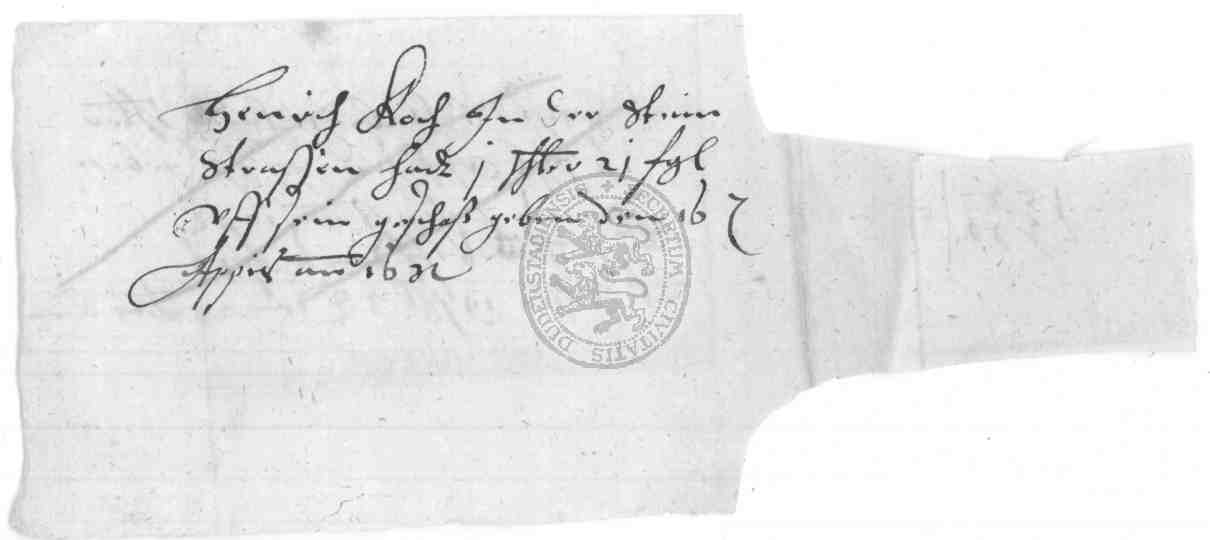 Henrich Koch In der Stein
Strassen hadt j thler 21 sgl
Vff sein geschoß geben den 16
Apprill ao 1632
SECRETUM CIVITATIS DUDERSTADENSIS